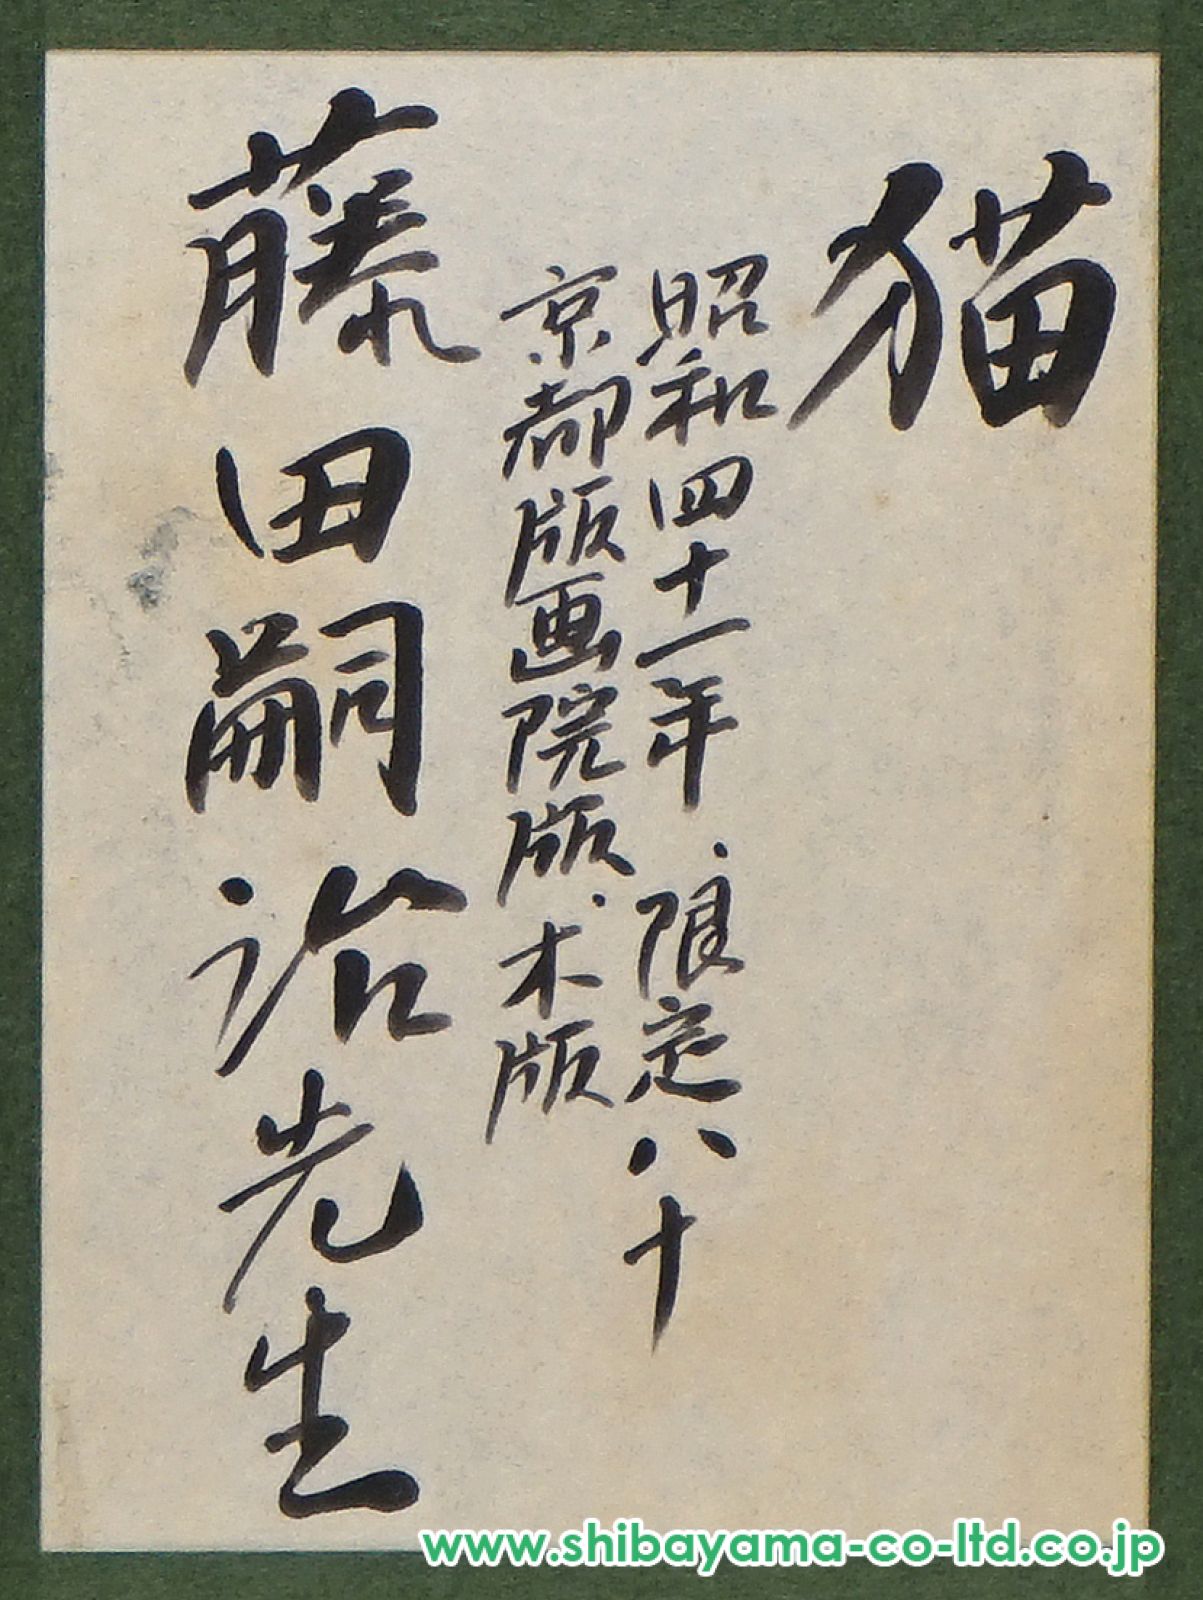 猫
昭和四十一年 限定八十
京都版画院版.木版
藤田嗣治先生
www.shibayama-co-ltd.co.jp